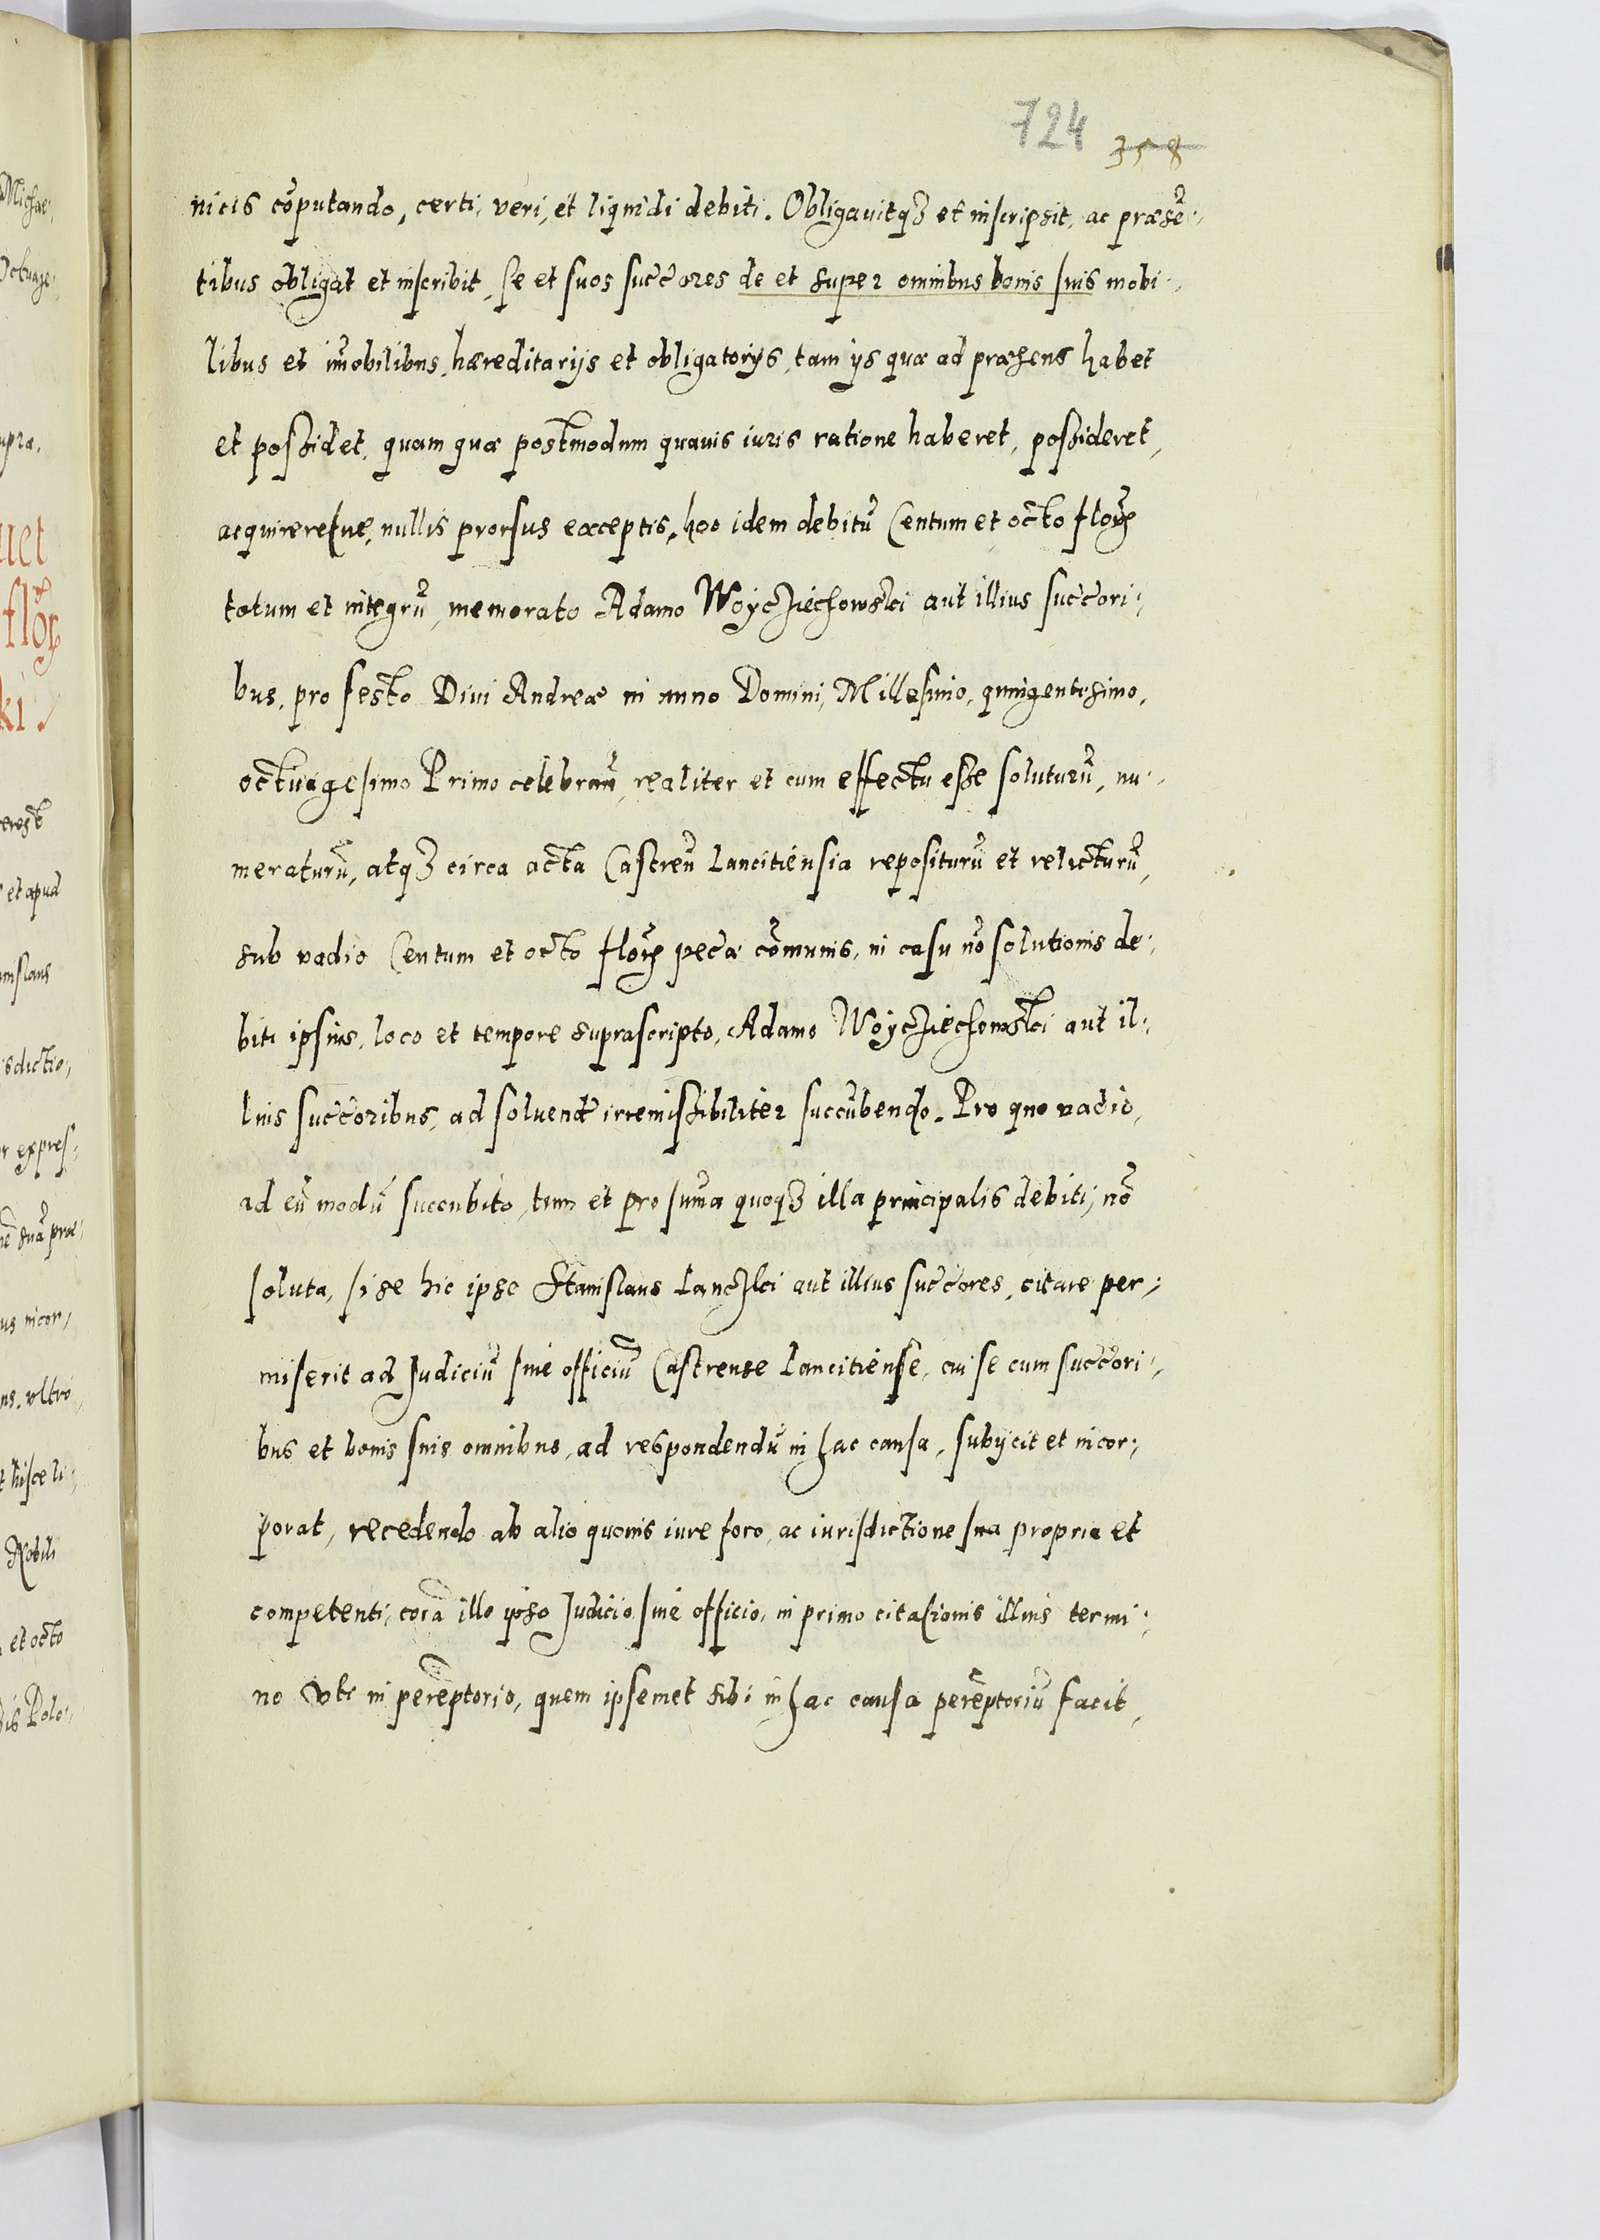 724 358
nicis cõputando, certi, veri, et liquidi debiti. Obligauitqꝫ et inscripsit, ac præsẽ-
tibus obligat et inscribit, se et suos succ̃ores de et super omnibus bonis suis mobi-
libus et im̃obilibus, hæreditarijs et obligatorijs, tam ijs quæ ad præsens habet
et possidet, quam quæ postmodum quauis iuris ratione haberet, possideret,
acquireretue, nullis prorsus exceptis, hoc idem debitũ Centum et octo florꝫ
totum et integrũ, memorato Adamo Woyczÿechowski aut illius succ̃ori-
bus, pro festo Diui Andreæ in anno Domini, Millesimo, quingentesimo,
octuagesimo Primo celebraň, realiter et cum effectu esse soluturũ, nu-
meraturũ, atqꝫ circa acta Castreñ Lancitiensia repositurũ et relicturũ,
sub vadio Centum et octo florꝫ pec̃æ cõmunis, in casu nõ solutionis de-
biti ipsius, loco et tempore suprascripto, Adamo Woyczÿechowski aut il-
lius succ̃oribus, ad soluend̃ irremissibiliter succubendo. Pro quo vadio,
ad eũ modũ succubito, tum et pro sum̃a quoqꝫ illa principalis debiti, nõ
soluta, si se hic ipse Stanislaus Lanczki aut illius succ̃ores, citare per-
miserit ad Judiciũ siue officiũ Castrense Lancitiense, cui se cum succ̃ori-
bus et bonis suis omnibus, ad respondendũ in hac causa, subijcit et incor-
porat, recedendo ab alio quouis iure foro, ac iurisdictione sua propria et
competenti, corã illo ipso Judicio siue officio, in primo citationis illius termi-
no vti in perẽptorio, quem ipsemet sibi in hac causa perẽptoriũ facit,